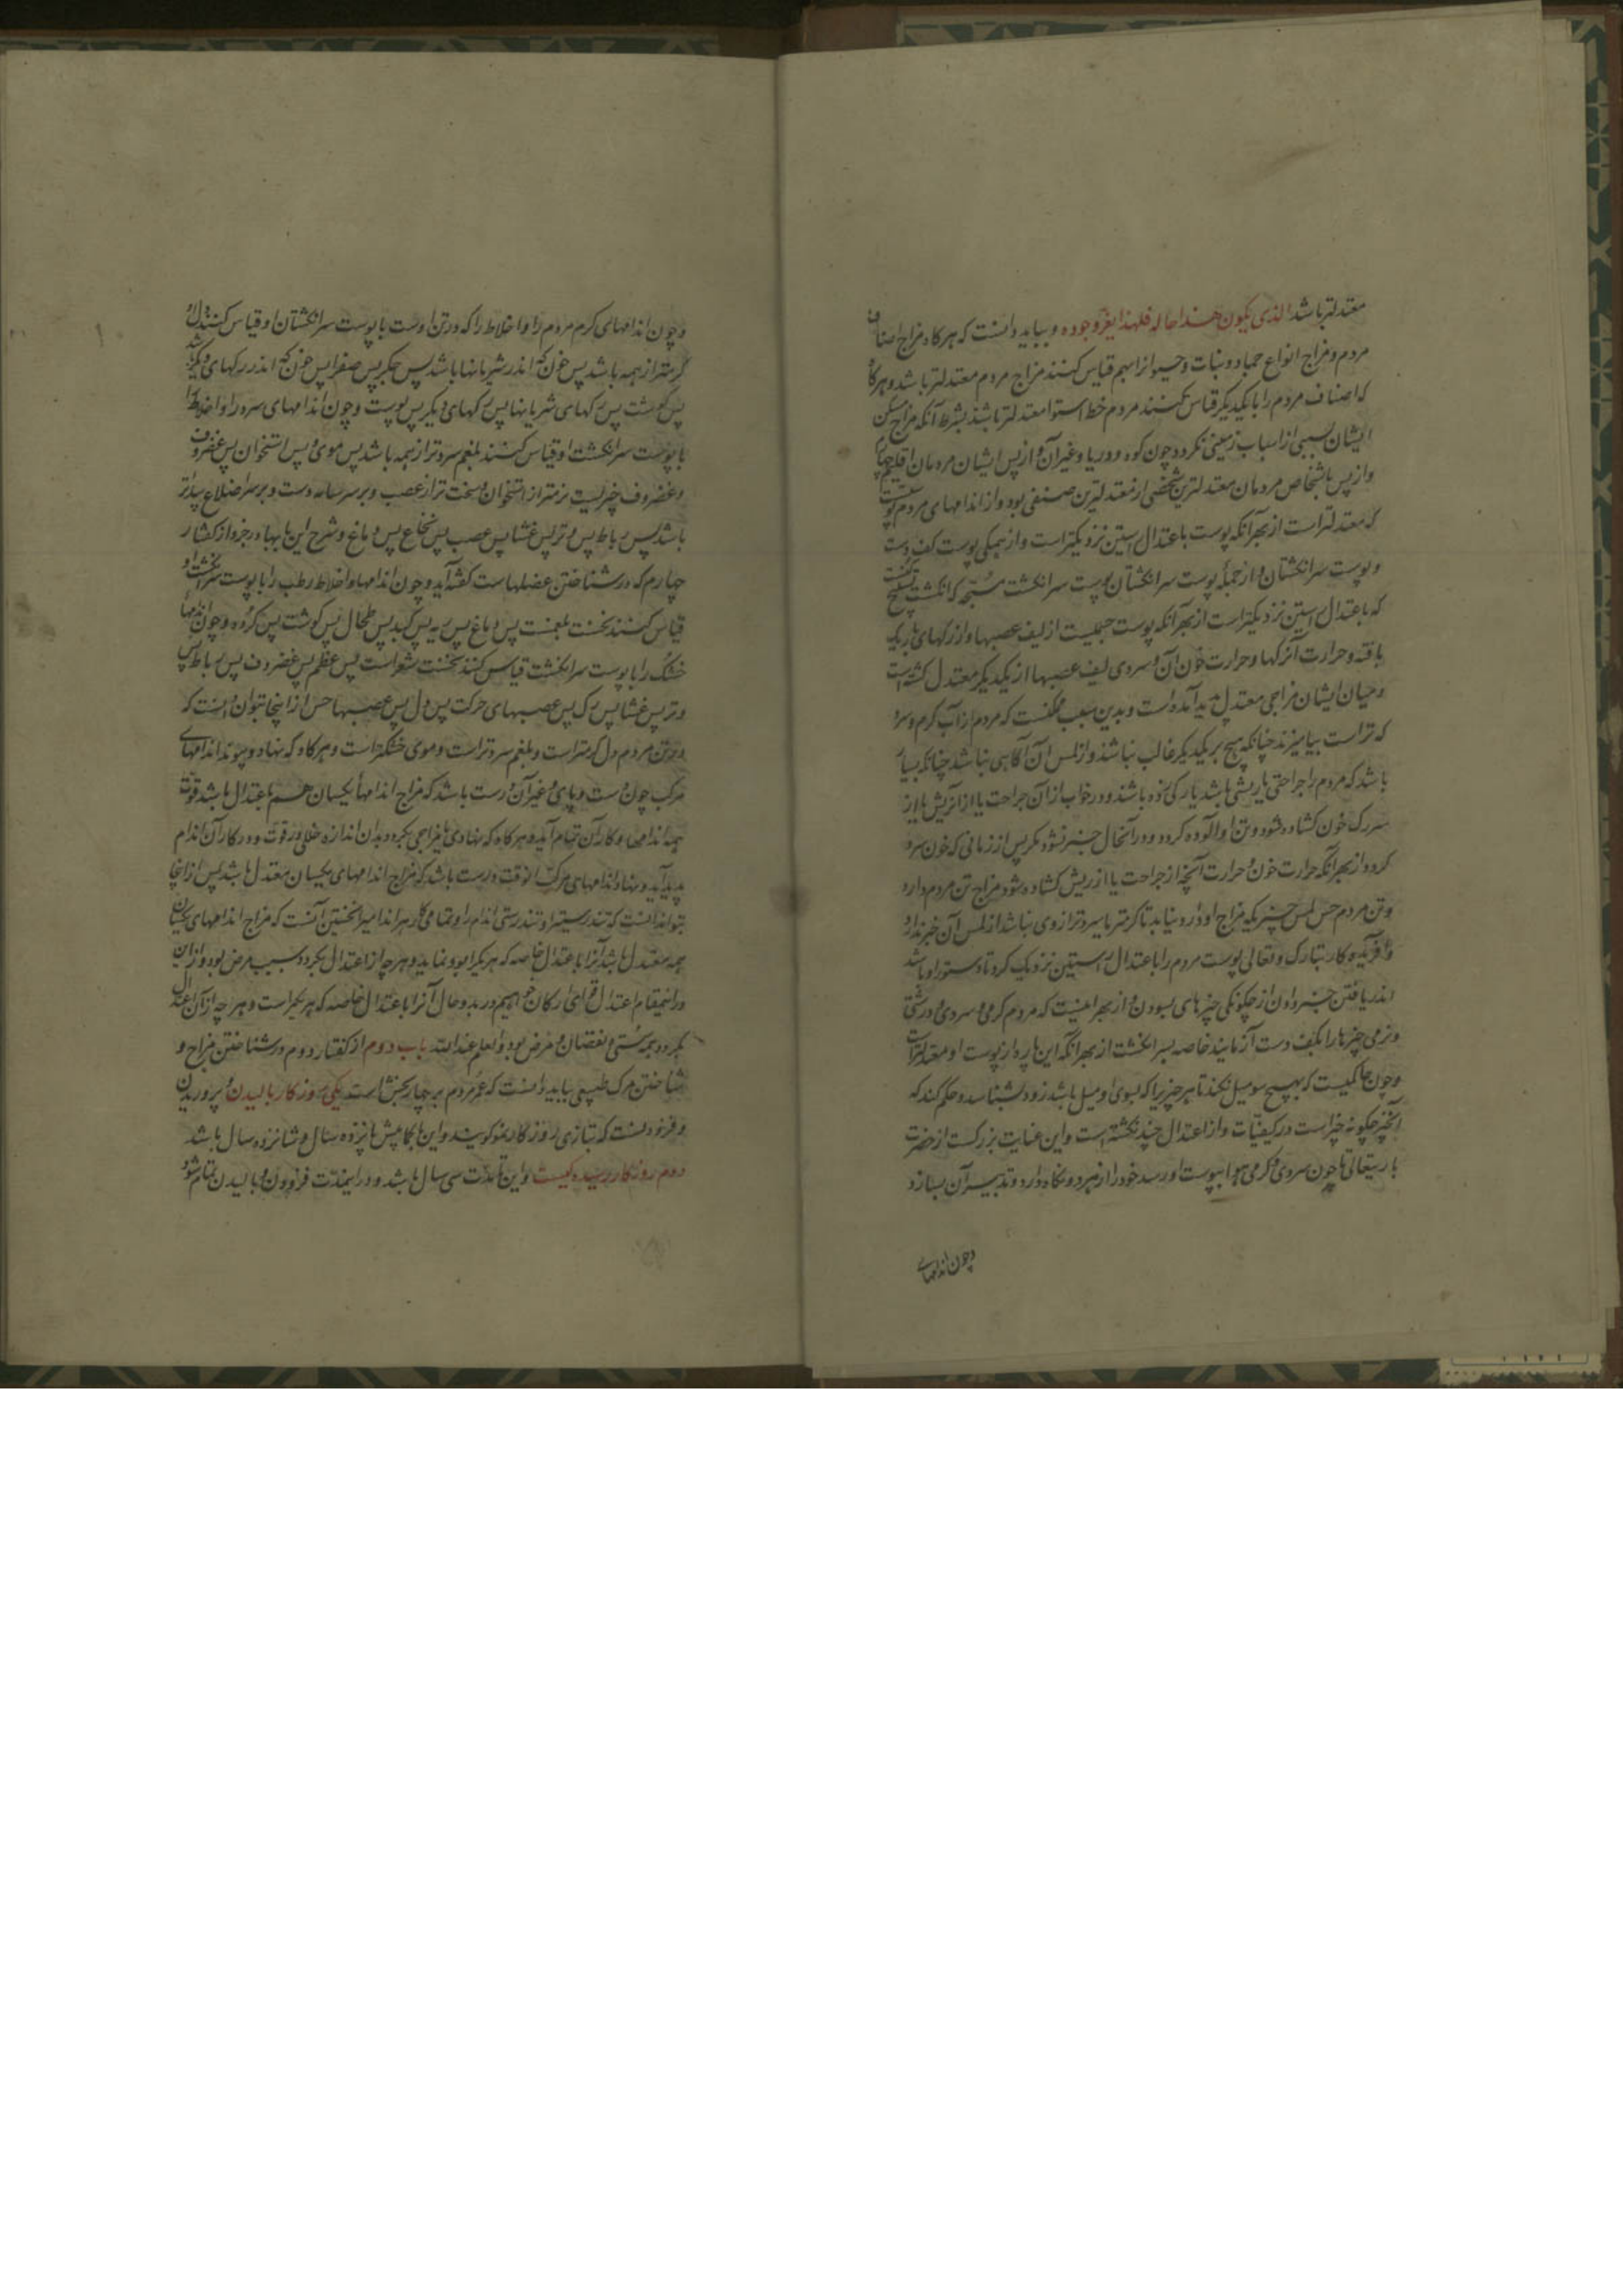 معتدلتر باشد الذی یکون هذا حاله فلهذا یغز وجوده و بباید دانست که هرکاه مزاج اصناف
مردم و مزاج انواع جماد و نبات و حیوانرا بهم قیاس کنند مزاج مردم معتدلتر باشد و هرکاه
که اصناف مردم را با یکدیکر قیاس کنند مردم خط استوا معتدلتر باشند بشرط آنکه مزاج مسکن
ایشان بسببی از اسباب زمینی نکردد چون کوه و دریا و غیر آن و از پس ایشان مردمان اقلیم چهارم
و از پس با شخاص مردمان معتدلترین شخصی از معتدلترین صنفی بود و از اندامهای مردم پوست
که معتدلتر است از بهر آنکه پوست باعتدال راستین نزدیکتر است و از همکی پوست کف دست
و پوست سر انکشتان و از جملهٔ پوست سر انکشتان پوست سر انکشت مسبحه که انکشت تسبیح کفتند
که باعتدال راستین نزدیکتر است از بهر آنکه پوست جسمیست از لیف عصبها و از رکهای باریک
بافته و حرارت آن رکها و حرارت خون آن و سردی لیف عصبها از یکدیکر معتدل کشته است
و میان ایشان مزاجی معتدل پدید آمده است و بدین سبب ممکنست که مردم از آب کرم و سرد
که تراست بیامیزند چنانکه هیچ بر یکدیکر غالب نباشد و از لمس آن آکاهی نباشد چنانکه بسیار
باشد که مردم را جراحتی یا ریشی باشد یا رکی زده باشند و در خواب از آن جراحت یا از آن ریش یا از
سر رک خون کشاده شود و تن او آلوده کردد و در آنحال خبر نشود مکر پس از زمانی که خون سرد
کردد از بهر آنکه حرارت خون و حرارت آنچه از جراحت یا از ریش کشاده شود مزاج تن مردم دارد
و تن مردم حس لمس چیزیکه مزاج او دارد نیابد تا کرمتر یا سردتر از وی نباشد از لمس آن خبر ندارد
و آفریدکار تبارک و تعالی پوست مردم را باعتدال راستین نزدیک کرد تا دستور او باشد
اندر یافتن خبر دادن از چکونکی چیزهای بسودن و از بهر اینست که مردم کرمی و سردی و درشتی
و نرمی چیزها را بکف دست آزمایند خاصه بسر انکشت از بهر آنکه این پاره از پوست او معتدلتر است
و چون حاکمیست که بهیچ سو میل نکند تا هر چیزیرا که بسوی او میل باشد زود بشناسد و حکم کند که
آنچیز چکونه چیز است در کیفیّات و از اعتدال چند نکشته است و این عنایت بزرکست از حضرت
باریتعالی تا چون سردی و کرمی هوا بپوست او رسد خود را از هر دو نکاه دارد و تدبیر آن بسازد
و چون اندامهای
و چون اندامهای کرم مردم را و اخلاط را که در تن اوست با پوست سر انکشتان او قیاس کنند دل او
کرمتر از همه باشد پس خون که اندر شریانها باشد پس جکر پس صفرا پس خون که اندر رکهای دیکر باشد
پس کوشت پس رکهای شریانها پس رکهای دیکر پس پوست و چون اندامهای سرد را و اخلاط را
با پوست سر انکشت او قیاس کنند بلغم سردتر از همه باشد پس موی پس استخوان پس غضروف
و غضروف چیزیست نرمتر از استخوان و سخت تر از عصب و بر سر شانه دست و بر سر اضلاع پیداتر
باشد پس رباط پس وتر پس غشا پس عصب پس نخاع پس دماغ و شرح این بابها در جزو از کفتار
چهارم که در شناختن عضلهاست کفته آید و چون اندامها و اخلاط رطب را با پوست سر انکشت او
قیاس کنند نخست بلغمست پس دماغ پس ریه پس کبد پس طحال پس کوشت پس کرده و چون اندامها
خشک را با پوست سر انکشت قیاس کنند نخست شعر است پس عظم پس غضروف پس رباط پس
وتر پس غشا پس رک پس عصبهای حرکت پس دل پس عصبها حس از اینجا بتوان دانست که
در تن مردم دل کرمتر است و بلغم سردتر است و موی خشکتر است و هرکاه که نهاد و پیوند اندامهای
مرکب چون دست و پای و غیر آن درست باشد که مزاج اندامها یکسان هم باعتدال باشد قوّت
همه اندامها و کار آن تمام آید و هرکاه که نهادی یا مزاجی بکردد بدان اندازه خللی در قوت و در کار آن اندام
پدید آید و نهاد اندامهای مرکب انوقت درست باشد که مزاج اندامهای یکسان معتدل باشد پس از انجا
بتواندانست که تندرستی او تندرستی اندام را و تمامی کار هر اندامی را نخستین آنست که مزاج اندامهای یکسان
همه معتدل باشد آنرا باعتدال خاصه که هر یکرا بود نماید و هر چه از اعتدال بکردد سبب مرض بود و از این
در اینمقام اعتدال ارکان خواهیم در بد و حال آنرا باعتدال خاصه که هر یکراست و هر چه از آن اعتدال
بکردد بجهة سستی و نقصان و مرض بود و العلم عند الله باب دوم از کفتار دوم در شناختن مزاج و
شناختن مرک طبیعی بباید دانست که عمر مردم بر چهار بخش است یکی روزکار بالیدن و پروریدن
و فزودنست که بتازی روزکار نمو کویند و این تا کمابیش پانزده سال و شانزده سال باشد
دوم روزکار رسیده کیست و این تا مدّت سی سال باشد و در اینمدّت فزودن و بالیدن تمام شود